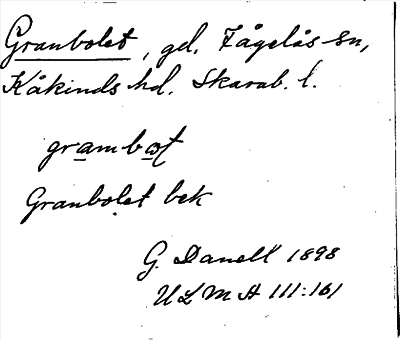 Granbolet, gd. Fågelås sn,
Kåkinds hd. Skarab. l.
grambωt
Granbolet bek
G. Danell 1898
ULMA 111:161